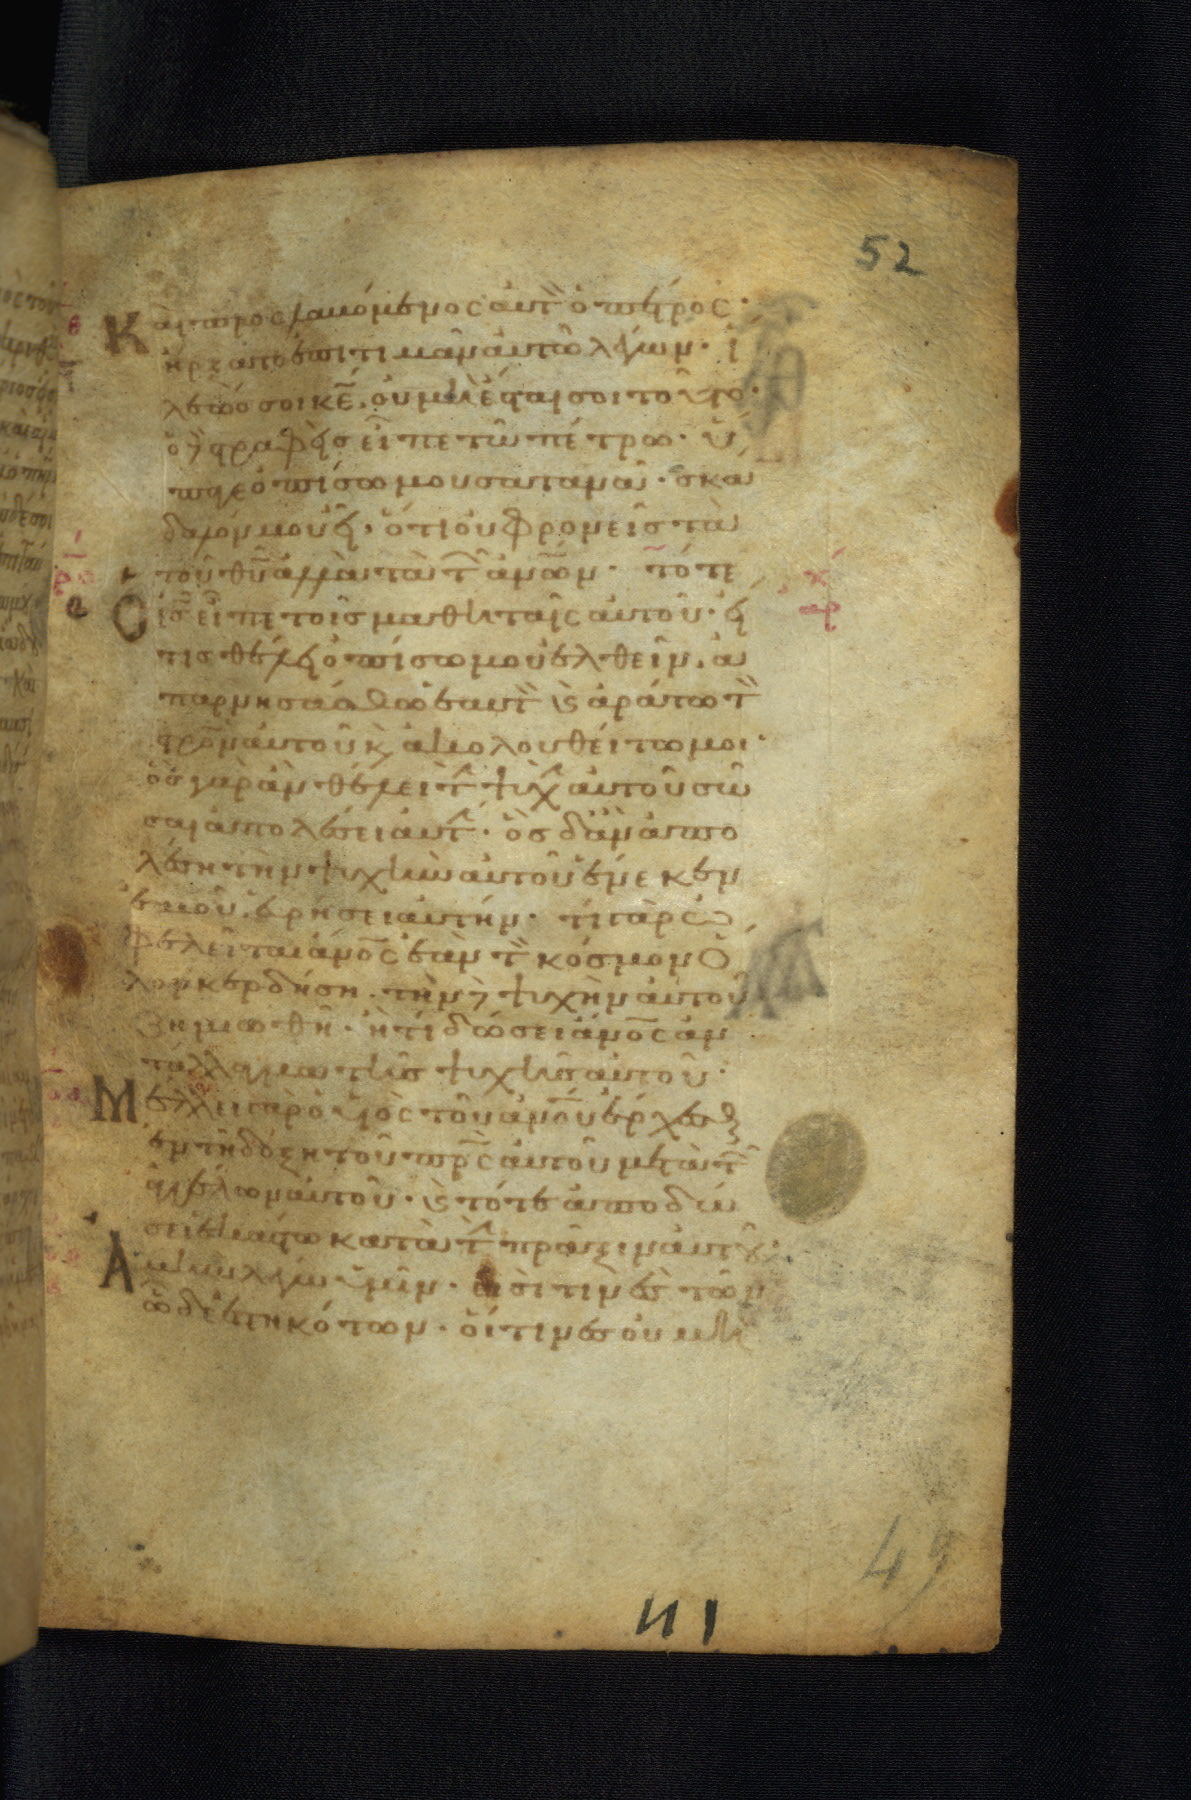 52
Καὶ προσλαβόμενος αὐτὸν ὁ πέτρος·
ἤρξατο ἐπιτιμᾶν αὐτῶ λέγων· ἵ
λεώς σοι κε̄, οὐ μὴ ἔσται σοι τοῦτο·
ὁ δὲ στραφεὶς εἶπε τῶ πέτρω· ὕ
παγε ὀπίσω μου σατανᾶ· σκάν
δαλόν μου εἶ, ὅτι οὐ φρονεῖς τὰ
τοῦ θῡ ἀλλὰ τὰ τῶν ἀνω̄ν· τότε
ὁ ις̄ εἶπε τοῖς μαθηταῖς αὐτοῦ· εἴ
τις θέλει ὀπίσω μου ἐλθεῖν, ἀ
παρνησάσθω ἑαυτὸν καὶ ἀράτω τὸν
σρο̄ν αὐτοῦ καὶ ἀκολουθείτω μοι·
ὃς γὰρ ἂν θέλει τὴν ψυχὴν αὐτοῦ σῶ
σαι ἀπολέσει αὐτήν· ὃς δ' ἂν ἀπο
λέση τὴν ψυχὴν αὐτοῦ ἕνεκεν
ἐμοῦ, εὑρήσει αὐτήν· τί γὰρ ὠ
φελεῖται ἀνο̄ς ἐὰν τὸν κόσμον ὅ
λον κερδήση· τὴν δὲ ψυχὴν αὐτοῦ
ζημιωθῆ· ἢ τί δώσει ἀνο̄ς ἀν
τάλλαγμα τῆς ψυχῆς αὐτοῦ·
Μέλλει γὰρ ὁ υἱὸς τοῦ ἀνο̄υ ἔρχεσθαι
ἐν τῆ δόξη τοῦ πρ̄ς αὐτοῦ μετὰ τῶν
ἀγγέλων αὐτοῦ· καὶ τότε ἀποδώ
σει ἑκάστω κατὰ τὴν πρᾶξιν αὐτοῦ·
Ἀμὴν λέγω ὑμῖν· εἰσί τινες τῶν
ὧδε ἑστηκότων· οἵτινες οὐ μὴ
49